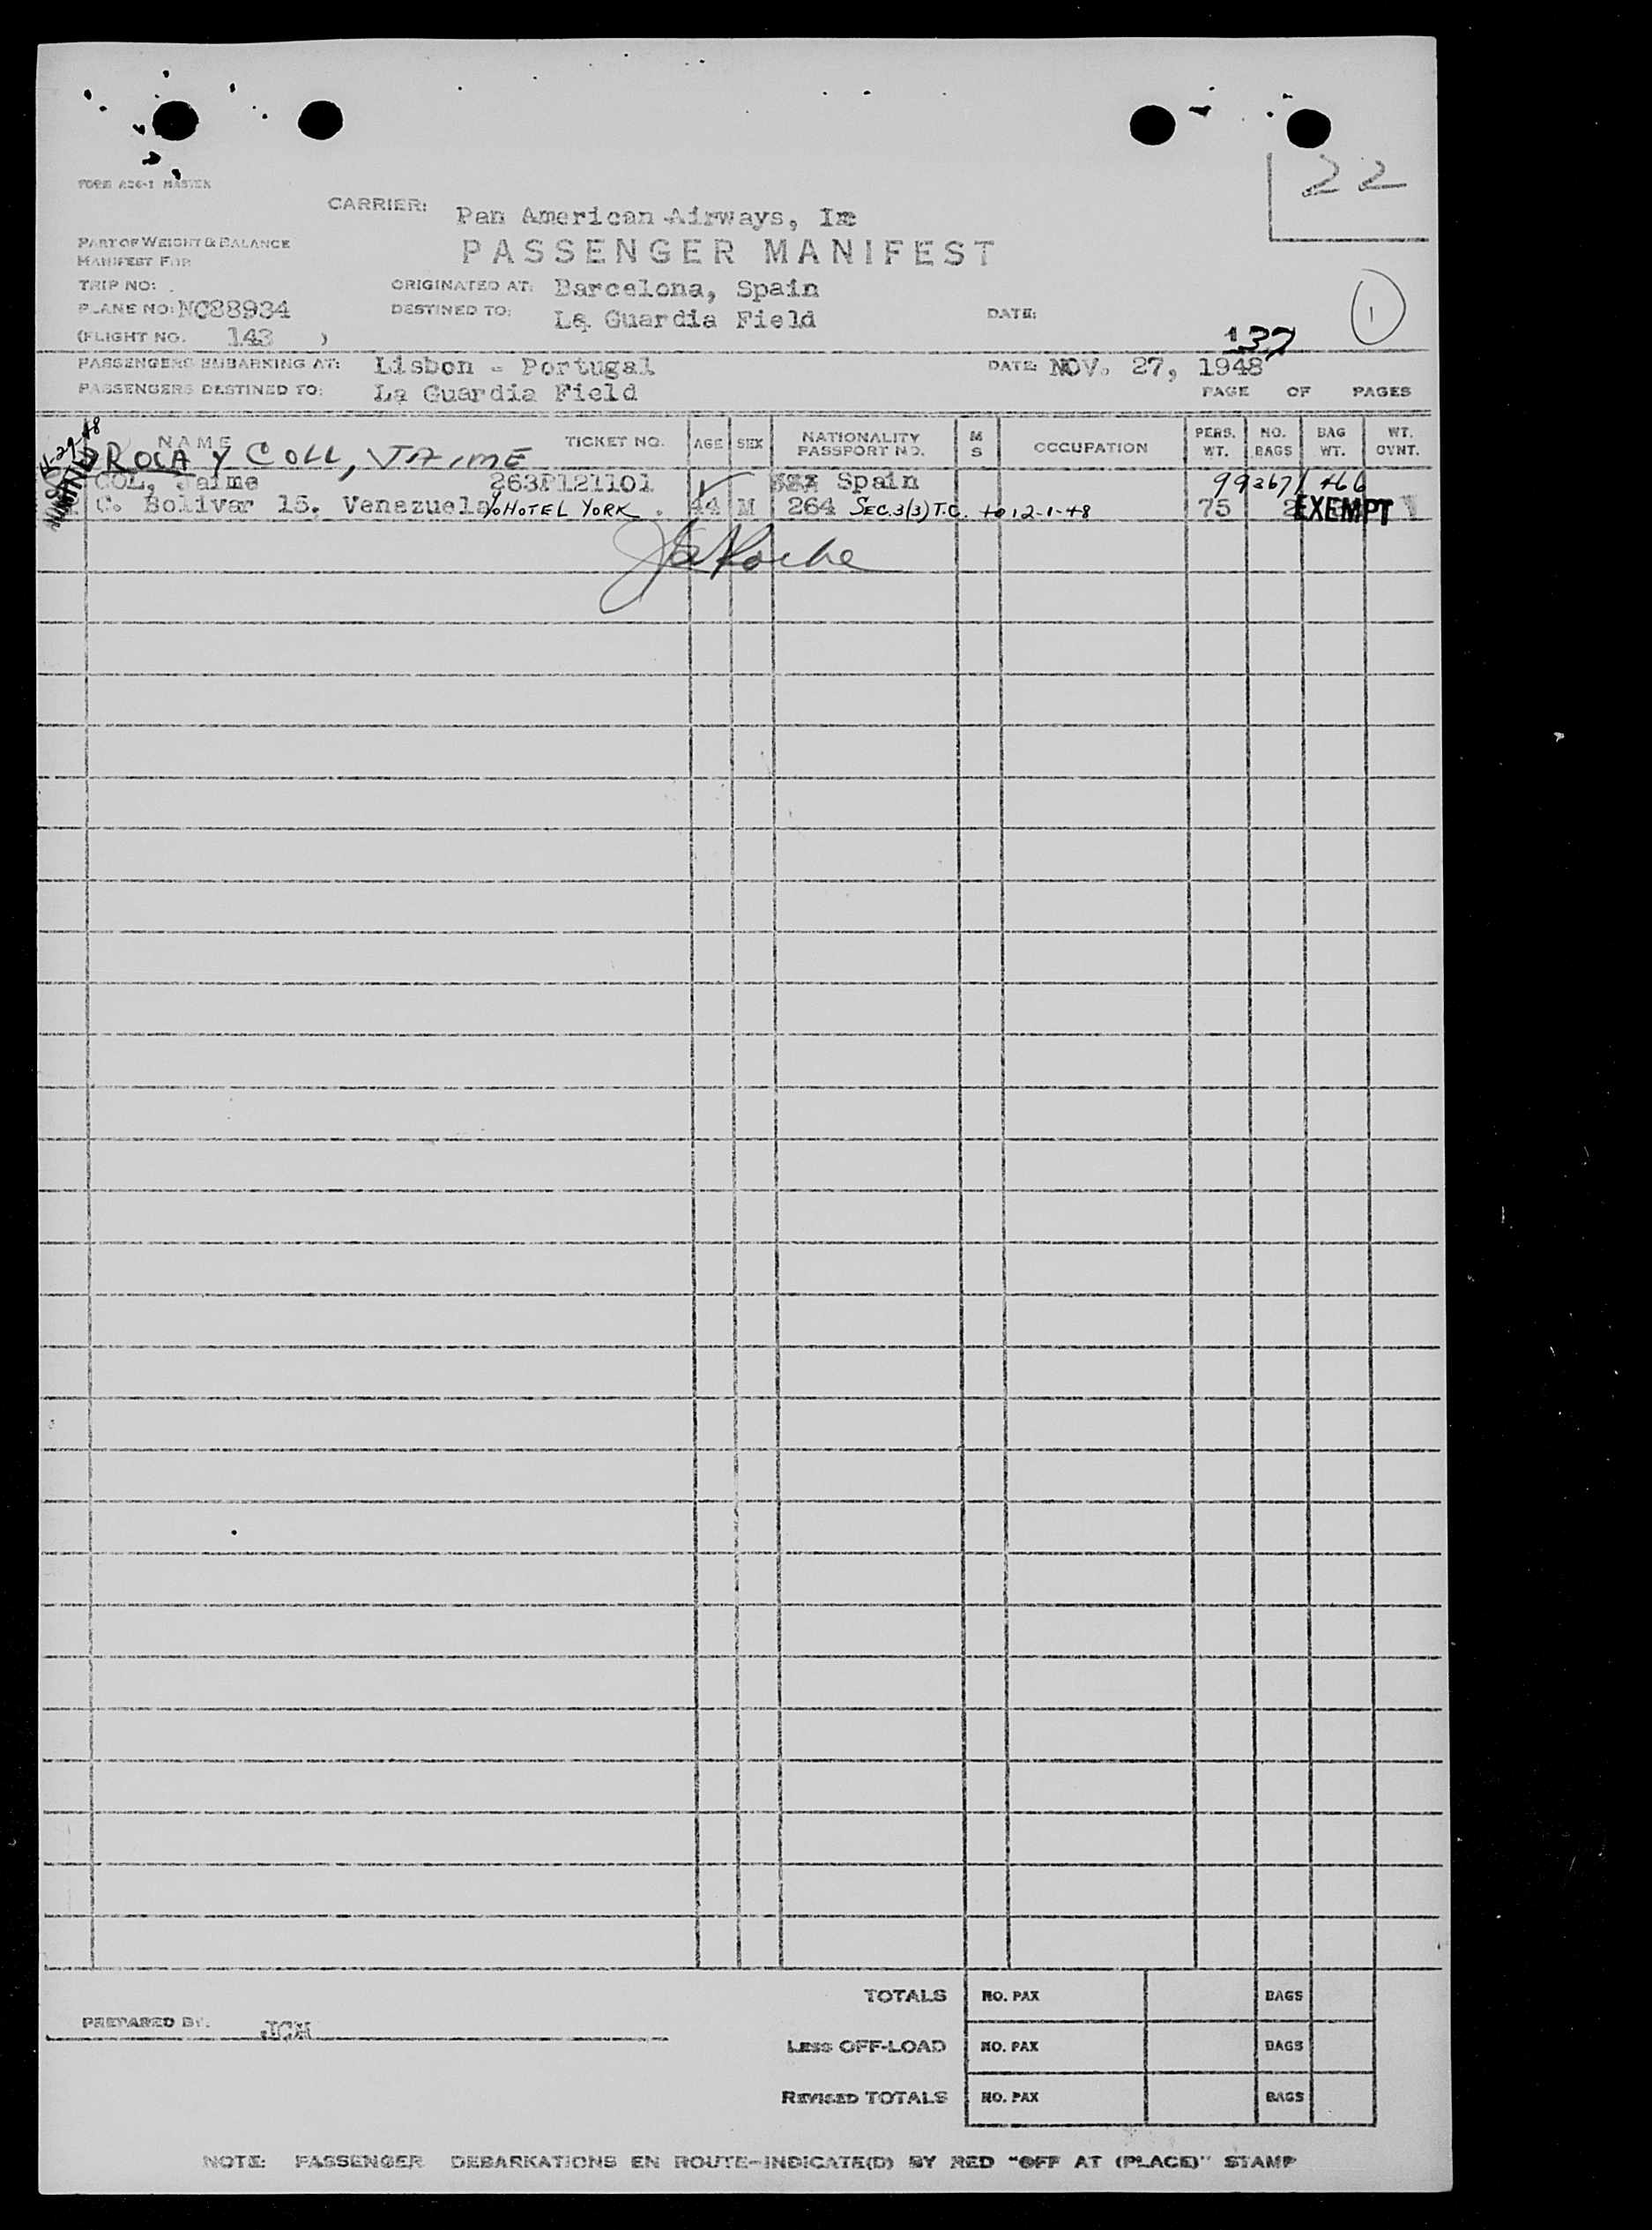 22
FORM A26-1 MASTER
CARRIER: Pan American Airways, In
PASSENGER MANIFEST
PART OF WEIGHT & BALANCE
MANIFEST FOR
TRIP NO:
ORIGINATED AT: Barcelona, Spain
PLANE NO: NC88934
DESTINED TO: La Guardia Field
DATE:
1
(FLIGHT NO. 143 )
137
PASSENGERS EMBARKING AT: Lisbon - Portugal
DATE: NOV. 27, 1948
PASSENGERS DESTINED TO: La Guardia Field
PAGE OF PAGES
NAME TICKET NO. AGE SEX NATIONALITY PASSPORT NO. M S OCCUPATION PERS. WT. NO. BAGS BAG WT. WT. OVNT.
ROCA Y COLL, JAIME
COL, Jaime 263P121101 Spain 992671 466
C. Bolivar 15. Venezuela % HOTEL YORK . 44 M 264 SEC. 3(3) T.C. to 12-1-48 75 2 EXEMPT
ADMITTED 11-29-48
PREPARED BY. JCM
TOTALS NO. PAX BAGS
LESS OFF-LOAD NO. PAX BAGS
REVISED TOTALS NO. PAX BAGS
NOTE: PASSENGER DEBARKATIONS EN ROUTE-INDICATE(D) BY RED "OFF AT (PLACE)" STAMP